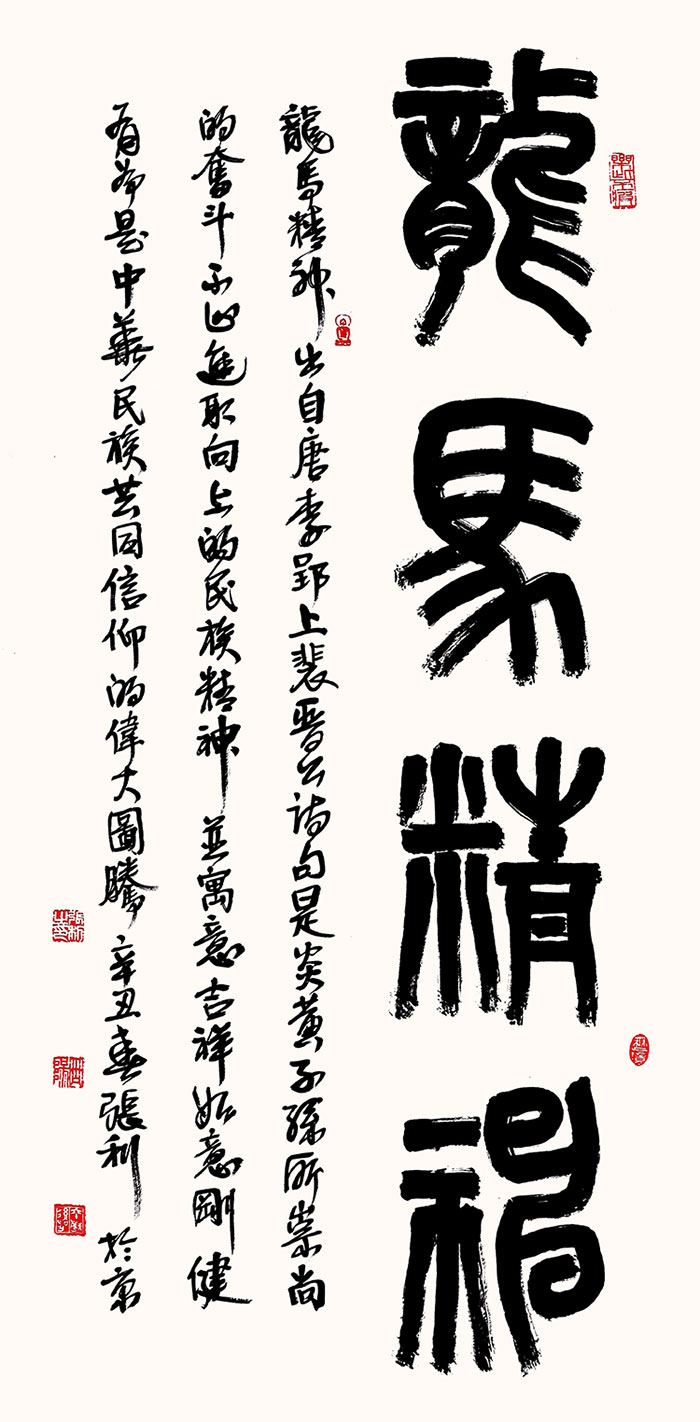 龍馬精神
龍馬精神出自唐李郢上裴晋公诗句是炎黄子孫所崇尚
的奮斗不止進取向上的民族精神並寓意吉祥如意剛健
有為是中華民族共同信仰的偉大圖騰辛丑春張利於京